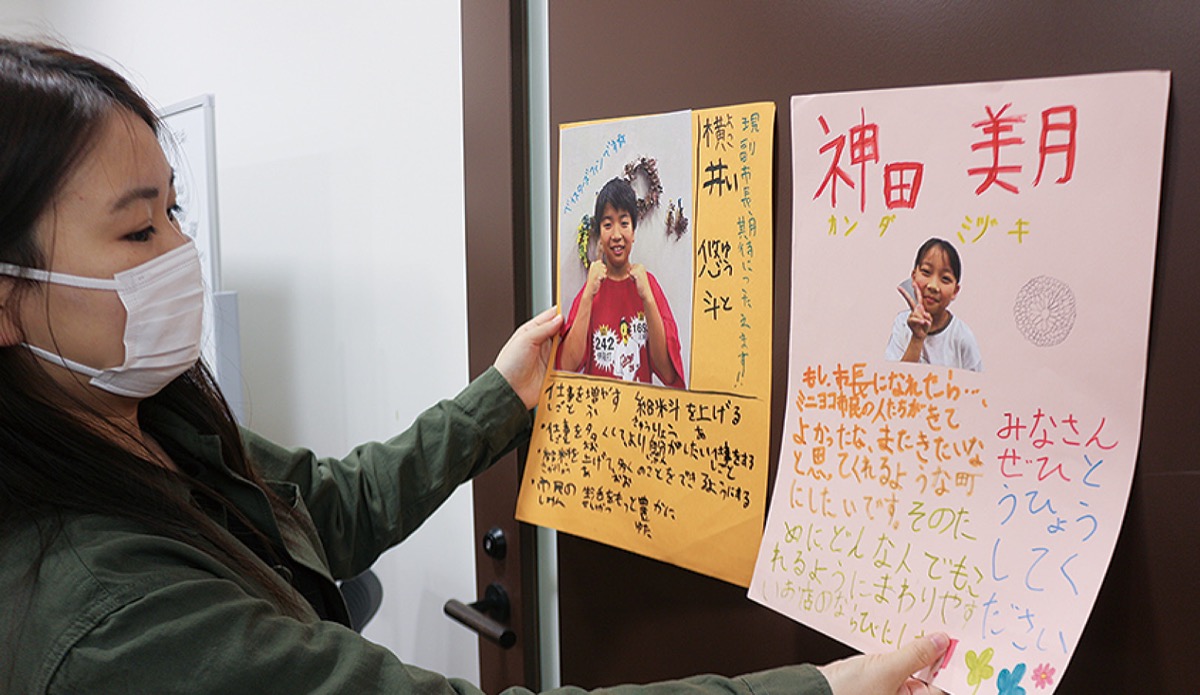 現り副市長、期待につたえます!!
横井 悠斗
よこ い ゆう と
ベイスターズファンです
242
仕事を増やす 給料を上げる
しごと ふ きゅうりょう あ
・仕事を多くしてより
・市民の生活をもっと豊かに
しみん せいかつ ゆた
神田 美月
カンダ ミヅキ
もし、市長になれたら…、
ミニヨコ市民の人たちがきて
よかったな、またきたいな
と思ってくれるような町
にしたいです。そのた
めに、どんな人でもこ
れるようにまわりやす
いお店のならびにし
みなさん
ぜひと
うひょう
してく
ださい